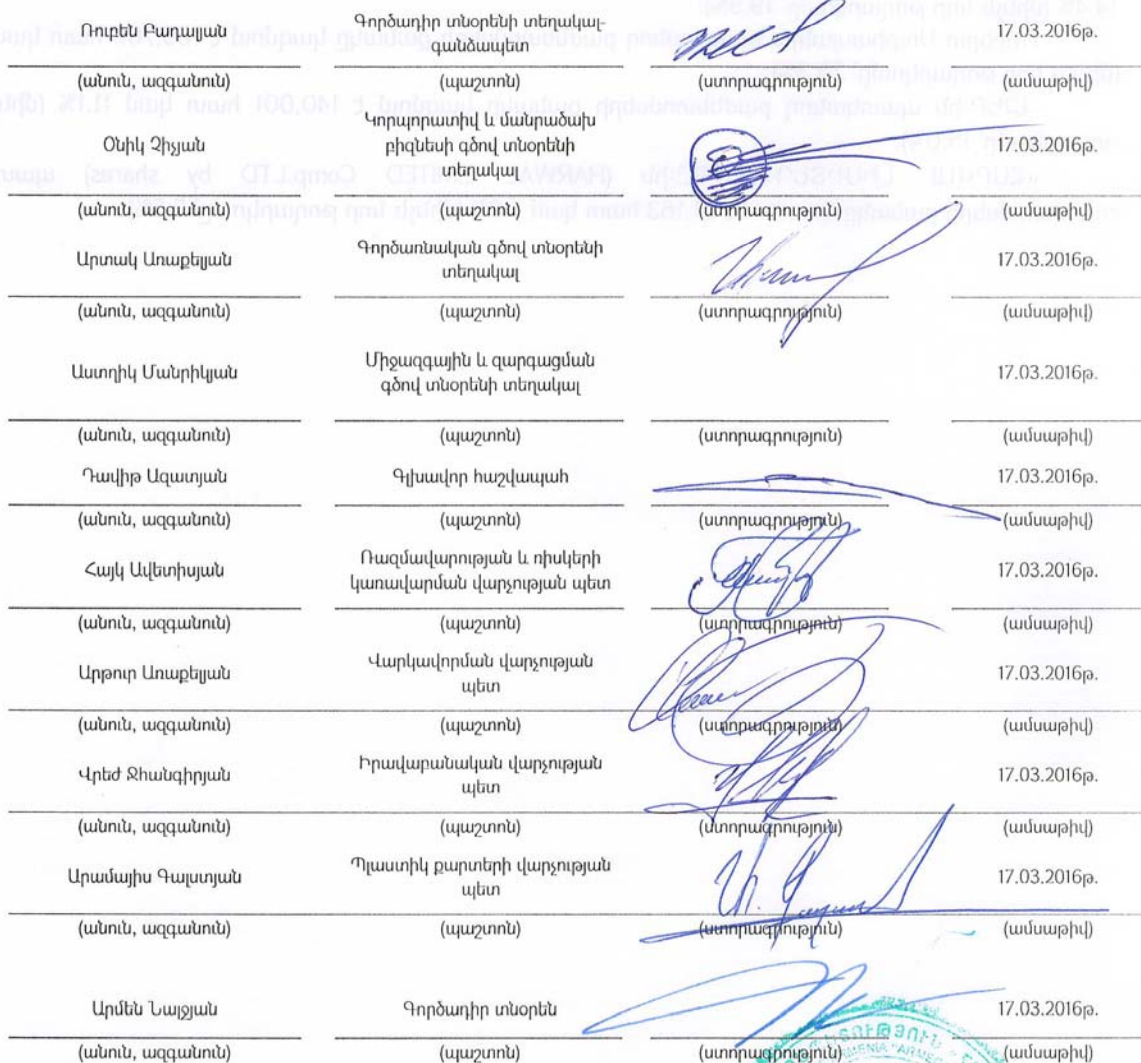 Ռուբեն Բադալյան Գործադիր տնօրենի տեղակալ- 17.03.2016թ.
գանձապետ
(անուն, ազգանուն) (պաշտոն) (ստորագրություն) (ամսաթիվ)
Օնիկ Չիչյան Կորպորատիվ և մանրածախ 17.03.2016թ.
բիզնեսի գծով տնօրենի
տեղակալ
(անուն, ազգանուն) (պաշտոն) (ստորագրություն) (ամսաթիվ)
Արտակ Առաքելյան Գործառնական գծով տնօրենի 17.03.2016թ.
տեղակալ
(անուն, ազգանուն) (պաշտոն) (ստորագրություն) (ամսաթիվ)
Աստղիկ Մանրիկյան Միջազգային և զարգացման 17.03.2016թ.
գծով տնօրենի տեղակալ
(անուն, ազգանուն) (պաշտոն) (ստորագրություն) (ամսաթիվ)
Դավիթ Ազատյան Գլխավոր հաշվապահ 17.03.2016թ.
(անուն, ազգանուն) (պաշտոն) (ստորագրություն) (ամսաթիվ)
Հայկ Ավետիսյան Ռազմավարության և ռիսկերի 17.03.2016թ.
կառավարման վարչության պետ
(անուն, ազգանուն) (պաշտոն) (ստորագրություն) (ամսաթիվ)
Արթուր Առաքելյան Վարկավորման վարչության 17.03.2016թ.
պետ
(անուն, ազգանուն) (պաշտոն) (ստորագրություն) (ամսաթիվ)
Վրեժ Ջհանգիրյան Իրավաբանական վարչության 17.03.2016թ.
պետ
(անուն, ազգանուն) (պաշտոն) (ստորագրություն) (ամսաթիվ)
Արամայիս Գալստյան Պլաստիկ քարտերի վարչության 17.03.2016թ.
պետ
(անուն, ազգանուն) (պաշտոն) (ստորագրություն) (ամսաթիվ)
Արմեն Նալջյան Գործադիր տնօրեն 17.03.2016թ.
(անուն, ազգանուն) (պաշտոն) (ստորագրություն) (ամսաթիվ)